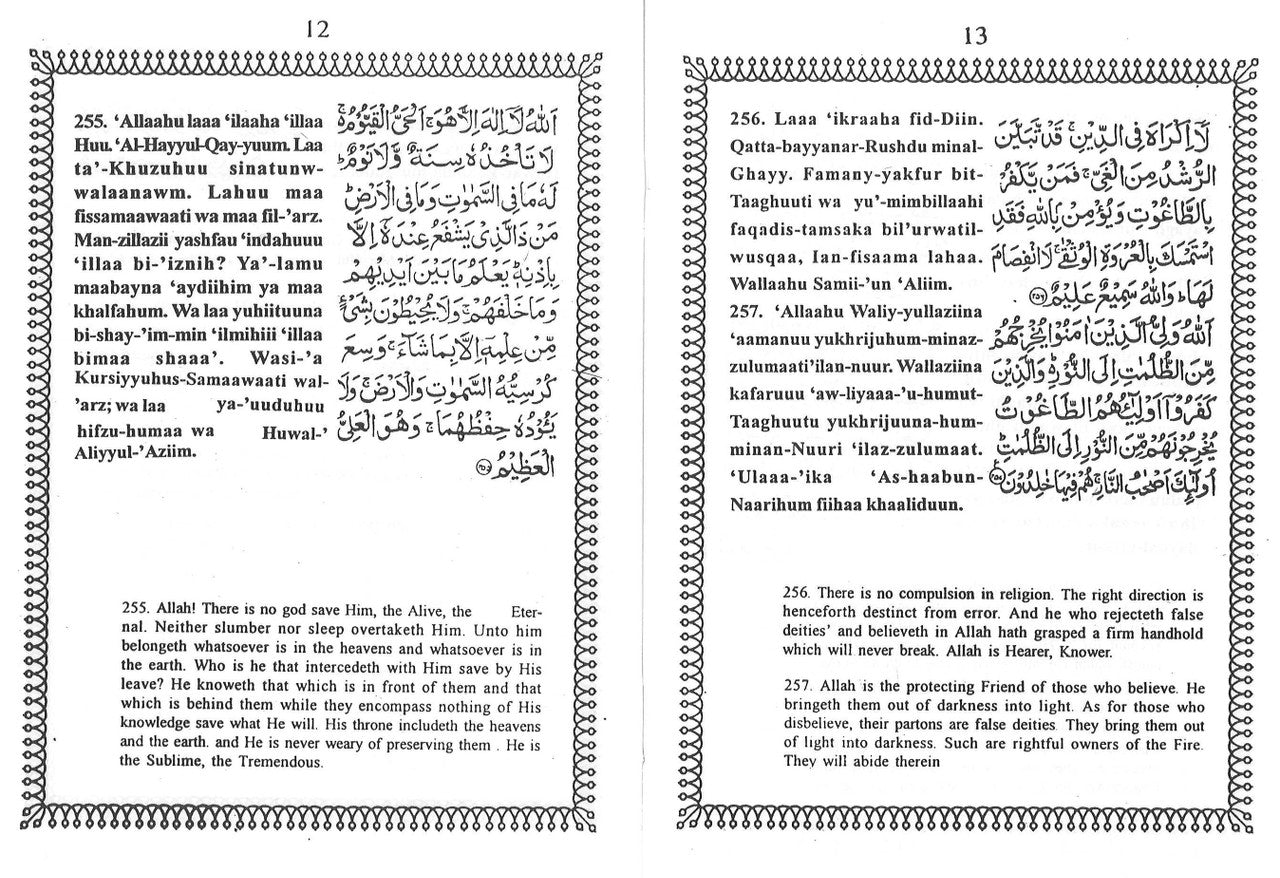 12
255. ‘Allaahu laaa ‘ilaaha ‘illaa
Huu. ‘Al-Hayyul-Qay-yuum. Laa
ta’-Khuzuhuu sinatunw-
walaanawm. Lahuu maa
fissamaawaati wa maa fil-’arz.
Man-zillazii yashfau ‘indahuuu
‘illaa bi-’iznih? Ya’-lamu
maabayna ‘aydiihim ya maa
khalfahum. Wa laa yuhiituuna
bi-shay-’im-min ‘ilmihiii ‘illaa
bimaa shaaa’. Wasi-’a
Kursiyyuhus-Samaawaati wal-
’arz; wa laa ya-’uuduhuu
hifzu-humaa wa Huwal-’
Aliyyul-’Aziim.
اَللّٰهُ لَاۤ اِلٰهَ اِلَّا هُوَ ۚ اَلْحَیُّ الْقَیُّوْمُ ۚ۬
لَا تَاْخُذُهٗ سِنَةٌ وَّلَا نَوْمٌ ؕ
لَهٗ مَا فِی السَّمٰوٰتِ وَمَا فِی الْاَرْضِ ؕ
مَنْ ذَا الَّذِیْ یَشْفَعُ عِنْدَهٗۤ اِلَّا
بِاِذْنِهٖ ؕ یَعْلَمُ مَا بَیْنَ اَیْدِیْهِمْ
وَمَا خَلْفَهُمْ ۚ وَلَا یُحِیْطُوْنَ بِشَیْءٍ
مِّنْ عِلْمِهٖۤ اِلَّا بِمَا شَآءَ ۚ وَسِعَ
كُرْسِیُّهُ السَّمٰوٰتِ وَالْاَرْضَ ۚ وَلَا
یَـُٔوْدُهٗ حِفْظُهُمَا ۚ وَهُوَ الْعَلِیُّ
الْعَظِیْمُ ﴿۲۵۵﴾
255. Allah! There is no god save Him, the Alive, the Eter-
nal. Neither slumber nor sleep overtaketh Him. Unto him
belongeth whatsoever is in the heavens and whatsoever is in
the earth. Who is he that intercedeth with Him save by His
leave? He knoweth that which is in front of them and that
which is behind them while they encompass nothing of His
knowledge save what He will. His throne includeth the heavens
and the earth. and He is never weary of preserving them . He is
the Sublime, the Tremendous.
13
256. Laaa ‘ikraaha fid-Diin.
Qatta-bayyanar-Rushdu minal-
Ghayy. Famany-yakfur bit-
Taaghuuti wa yu’-mimbillaahi
faqadis-tamsaka bil’urwatil-
wusqaa, Ian-fisaama lahaa.
Wallaahu Samii-’un ‘Aliim.
257. ‘Allaahu Waliy-yullaziina
‘aamanuu yukhrijuhum-minaz-
zulumaati’ilan-nuur. Wallaziina
kafaruuu ‘aw-liyaaa-’u-humut-
Taaghuutu yukhrijuuna-hum-
minan-Nuuri ‘ilaz-zulumaat.
‘Ulaaa-’ika ‘As-haabun-
Naarihum fiihaa khaaliduun.
لَاۤ اِكْرَاهَ فِی الدِّیْنِ ۚ قَدْ تَّبَیَّنَ
الرُّشْدُ مِنَ الْغَیِّ ۚ فَمَنْ یَّكْفُرْ
بِالطَّاغُوْتِ وَیُؤْمِنْۢ بِاللّٰهِ فَقَدِ
اسْتَمْسَكَ بِالْعُرْوَةِ الْوُثْقٰی ۗ لَا انْفِصَامَ
لَهَا ؕ وَاللّٰهُ سَمِیْعٌ عَلِیْمٌ ﴿۲۵۶﴾
اَللّٰهُ وَلِیُّ الَّذِیْنَ اٰمَنُوْا یُخْرِجُهُمْ
مِّنَ الظُّلُمٰتِ اِلَی النُّوْرِ ؕ۬ وَالَّذِیْنَ
كَفَرُوْۤا اَوْلِیٰٓـُٔهُمُ الطَّاغُوْتُ
یُخْرِجُوْنَهُمْ مِّنَ النُّوْرِ اِلَی الظُّلُمٰتِ ؕ
اُولٰٓئِكَ اَصْحٰبُ النَّارِ ۚ هُمْ فِیْهَا خٰلِدُوْنَ ﴿۲۵۷﴾
256. There is no compulsion in religion. The right direction is
henceforth destinct from error. And he who rejecteth false
deities’ and believeth in Allah hath grasped a firm handhold
which will never break. Allah is Hearer, Knower.
257. Allah is the protecting Friend of those who believe. He
bringeth them out of darkness into light. As for those who
disbelieve, their partons are false deities. They bring them out
of light into darkness. Such are rightful owners of the Fire.
They will abide therein